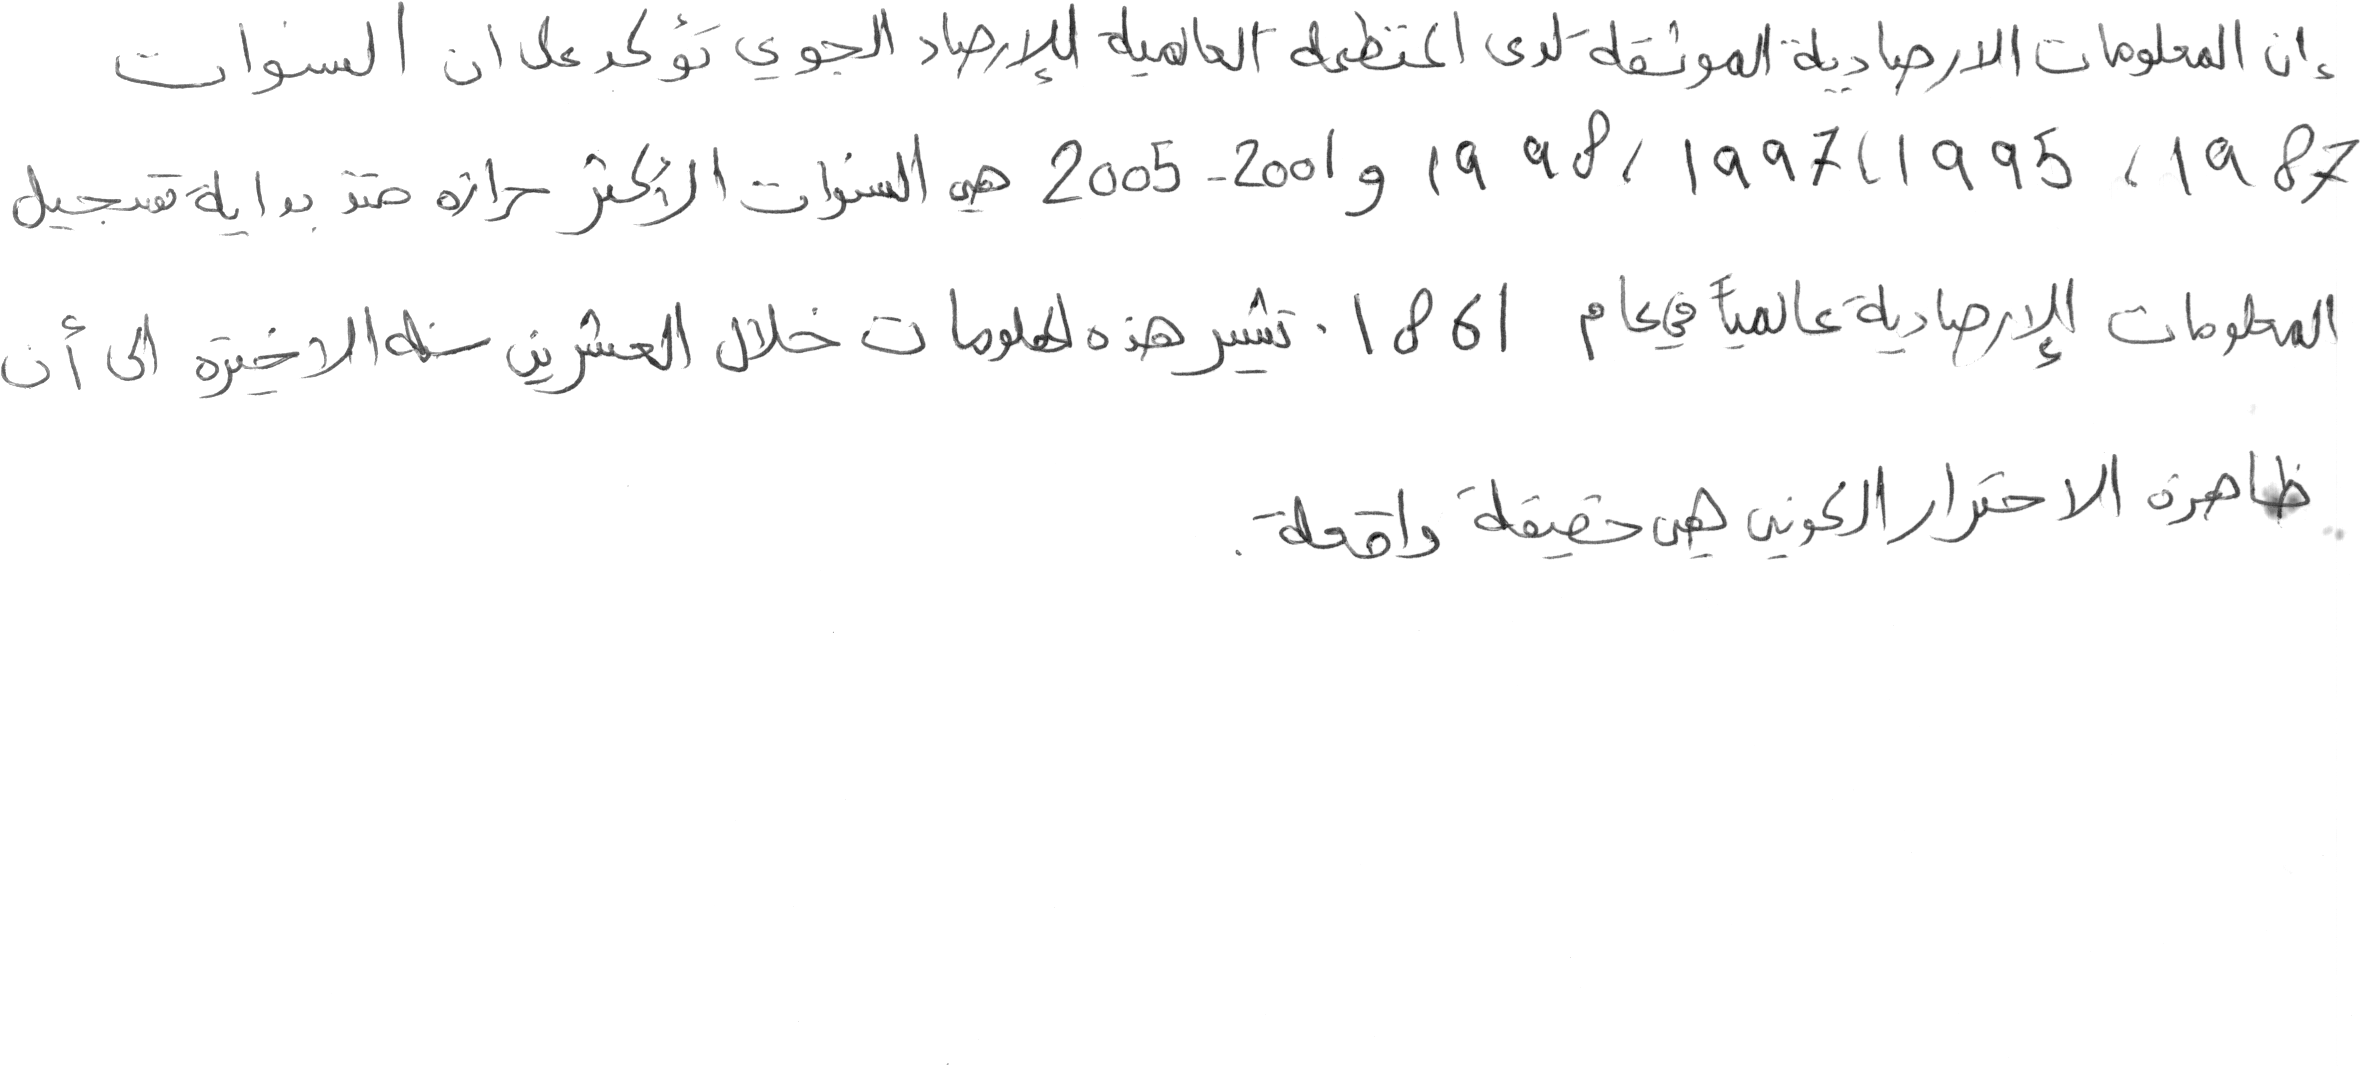 إن المعلومات الارصادية الموثقة لدى المنظمة العالمية للإرصاد الجوي تؤكد على ان السنوات
1987، 1995، 1997، 1998 و 2001-2005 هي السنوات الأكثر حرارة منذ بداية تسجيل
المعلومات الإرصادية عالمياً في عام 1861. تشير هذه المعلومات خلال العشرين سنة الاخيرة الى أن
ظاهرة الاحترار الكوني هي حقيقة واقعة.